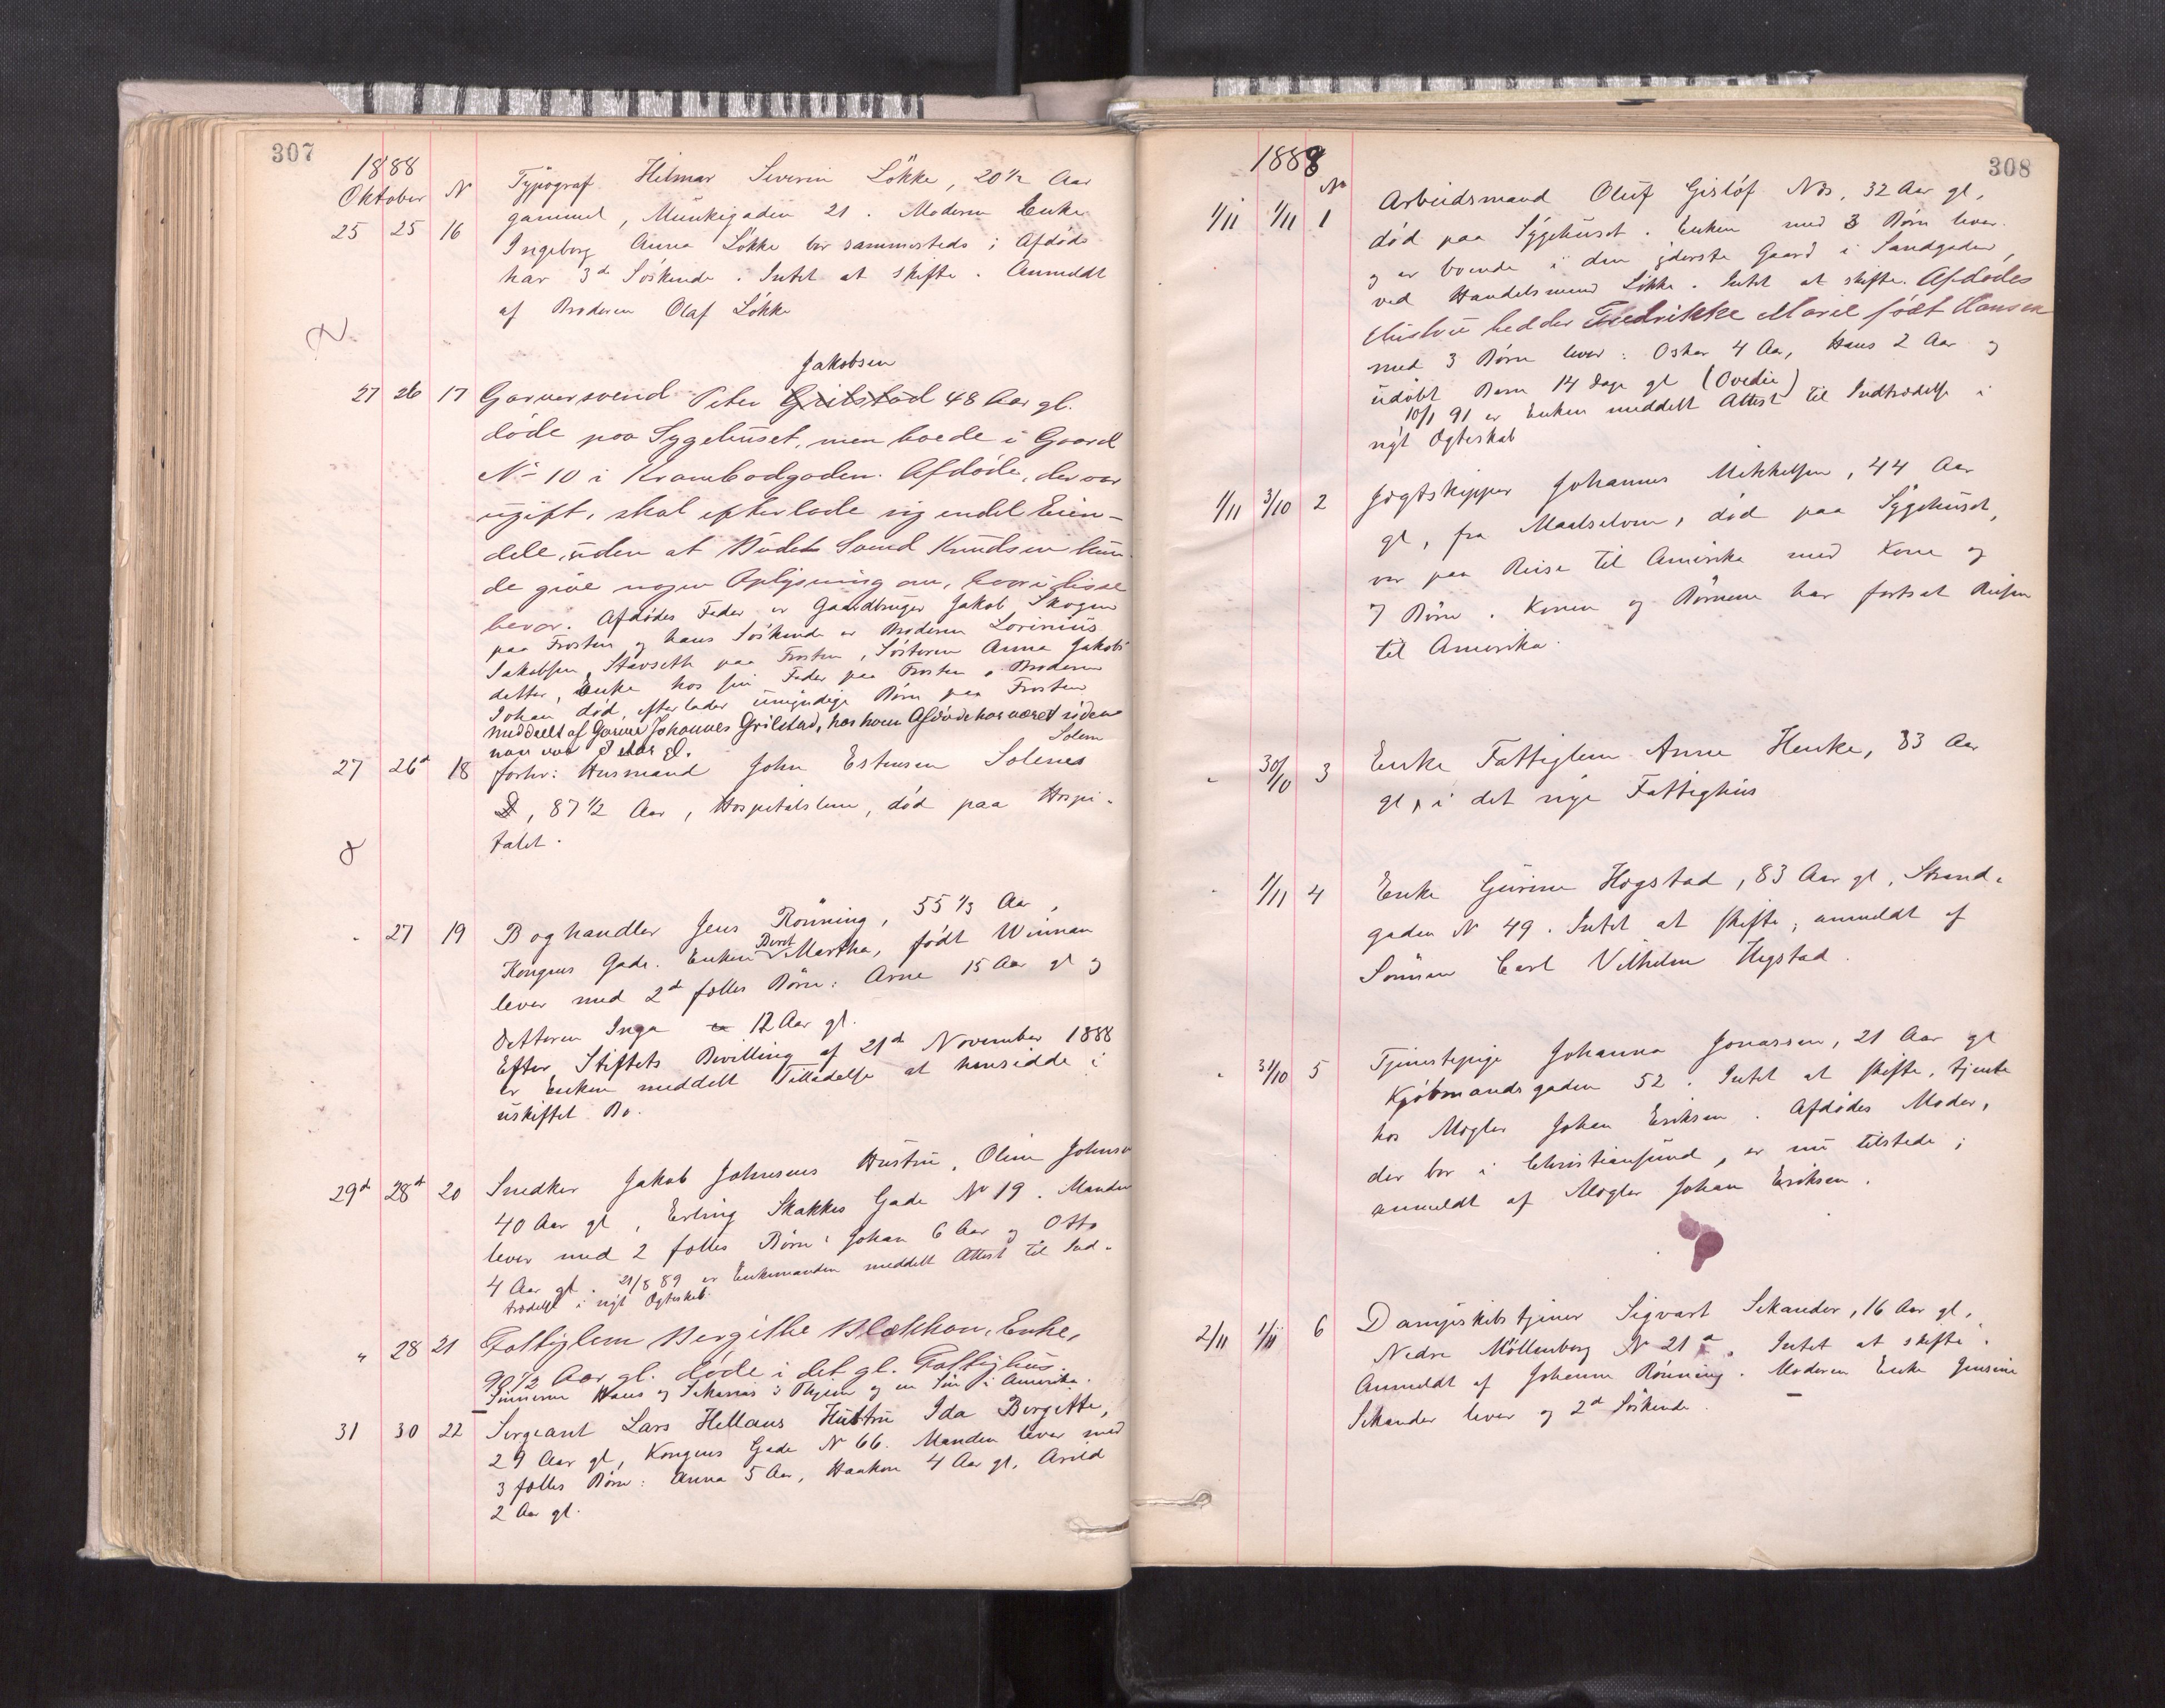 307
1888
Oktober N
25 25 16 Typograf Hilmar Severin Lökke, 20 1/2 Aar
gammel, Munkegaden 21. Moderen Enke
Ingeborg Anna Lökke bor sammesteds; Afdöde
har 3de Söskende. Intet at skifte. Anmeldt
af Broderen Olaf Lökke
Jakobsen
27 26 17 Garversvend Peter Grilstad 48 Aar gl.
döde paa Sygehuset, men boede i Gaard
No 10 i Krambodgaden. Afdöde, der var
ugift, skal efterlade sig endel Eien-
dele, uden at Budet Svend Knudsen kun-
de give nogen Oplysning om, hvori disse
bevar. Afdödes Fader er Gaardbruger Jakob Skogen
paa Frosten og hans Söskende er Broderen Lorinius
Jakobsen Stavseth paa Frosten, Sösteren Anna Jakobs
datter, Enke hos sin Fader paa Frosten, Broderen
Johan död, efterlader umyndige Börn paa Frosten
meddelt af Garver Johannes Grilstad, hos hvem Afdöde har været siden
han var 8 Aar gl.
Solem
27 26de 18 forhv: Husmand John Estensen Solenes
, 87 1/2 Aar, Hospitalslem, död paa Hospi-
talet.
" 27 19 Boghandler Jens Rönning, 55 1/3 Aar,
Kongens Gade. Enken Beret Martha, födt Winnan
lever med 2de fælles Börn: Arne 15 Aar gl og
Datteren Inga 12 Aar gl.
Efter Stiftets Bevilling af 21de November 1888
er Enken meddelt Tilladelse at hensidde i
uskiftet Bo.
29de 28de 20 Snedker Jakob Johnsens Hustru, Oline Johnsen
40 Aar gl, Erling Skakkes Gade No 19. Manden
lever med 2 fælles Börn: Johan 6 Aar og Otto
4 Aar gl. 21/8 89 er Enkemanden meddelt Attest til Ind-
trædelse i nyt Ægteskab.
" 28 21 Fattiglem Bergithe Blekkan, Enke,
90 1/2 Aar gl. döde i det gl. Fattighus.
Sönnerne Hans og Johannes i Thjem og en Sön i Amerika.
31 30 22 Sergeant Lars Hellans Hustru Ida Bergitte,
29 Aar gl, Kongens Gade No 66. Manden lever med
3 fælles Börn: Anna 5 Aar, Haakon 4 Aar gl, Arvid
2 Aar gl.
308
1888
No
1/11 1/11 1 Arbeidsmand Oluf Gislöf No., 32 Aar gl,
död paa Sygehuset. Enken med 3 Börn lever
og er boende i den yderste Gaard i Sandgaden,
ved Handelsmand Lökke. Intet at skifte. Afdödes
Hustru hedder Fredrikke Marie födt Hansen
med 3 Börn lever: Oskar 4 Aar, Hans 2 Aar og
udöbt Barn 14 Dage gl (Ovedie)
10/1 91 er Enken meddelt Attest til Indtrædelse i
nyt Ægteskab
1/11 3/10 2 Jægtskipper Johannes Mikkelsen, 44 Aar
gl, fra Maalselven, död paa Sygehuset,
var paa Reise til Amerika med Kone og
7 Börn. Konen og Börnene har fortsat Reisen
til Amerika.
" 30/10 3 Enke Fattiglem Anne Henke, 83 Aar
gl, i det nye Fattighus
" 1/11 4 Enke Gurine Hogstad, 83 Aar gl, Strand-
gaden No 49. Intet at skifte, anmeldt af
Sönnen Carl Vilhelm Hegstad.
" 31/10 5 Tjenestepige Johanna Jonassen, 21 Aar gl
Kjöbmandsgaden 52. Intet at skifte, tjente
hos Mægler Johan Eriksen. Afdödes Moder,
der bor i Christiansund, er nu tilstede;
anmeldt af Mægler Johan Eriksen.
2/11 1/11 6 Dampskibstjener Sigvart Sekander, 16 Aar gl,
Nedre Möllenberg No 21 a. Intet at skifte.
Anmeldt af Johanne Rönning. Moderen Enke Jensine
Sekander lever og 2de Söskende.